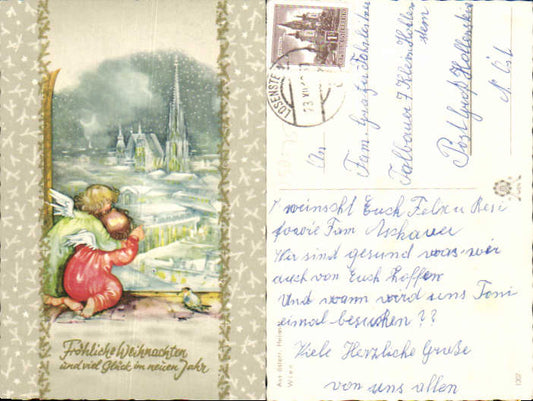 Fröhliche Weihnachten
und viel Glück im neuen Jahr
LOSENSTE
An
Fam. Ignatz
Talbauer 7 Klein Hollen
stein
Post Groß Hollenstein
N. Öst
weinscht Euch Felix u Resi
sowie Fam Aschauer
Wir sind gesund was wir
auch von Euch hoffen
Und wann wird uns Toni
eimal besuchen ??
Viele Herzliche Grüße
von uns allen
Wien